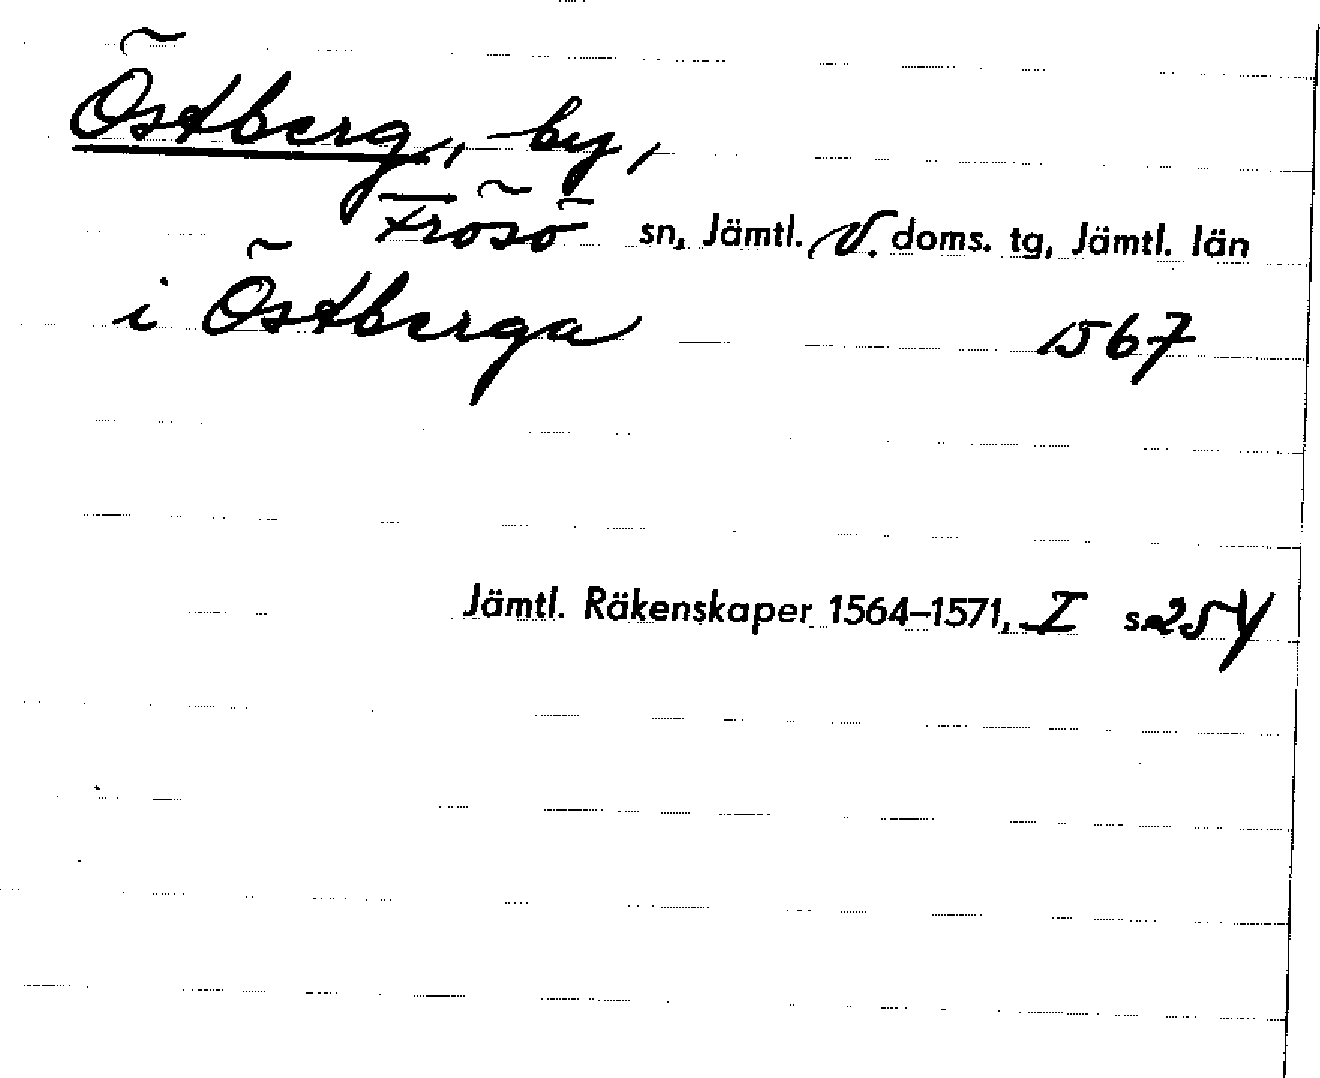 Östberg, by,
Frösö sn, Jämtl. V. doms. tg, Jämtl. län
i Östberga 1567
Jämtl. Räkenskaper 1564–1571, I s. 254